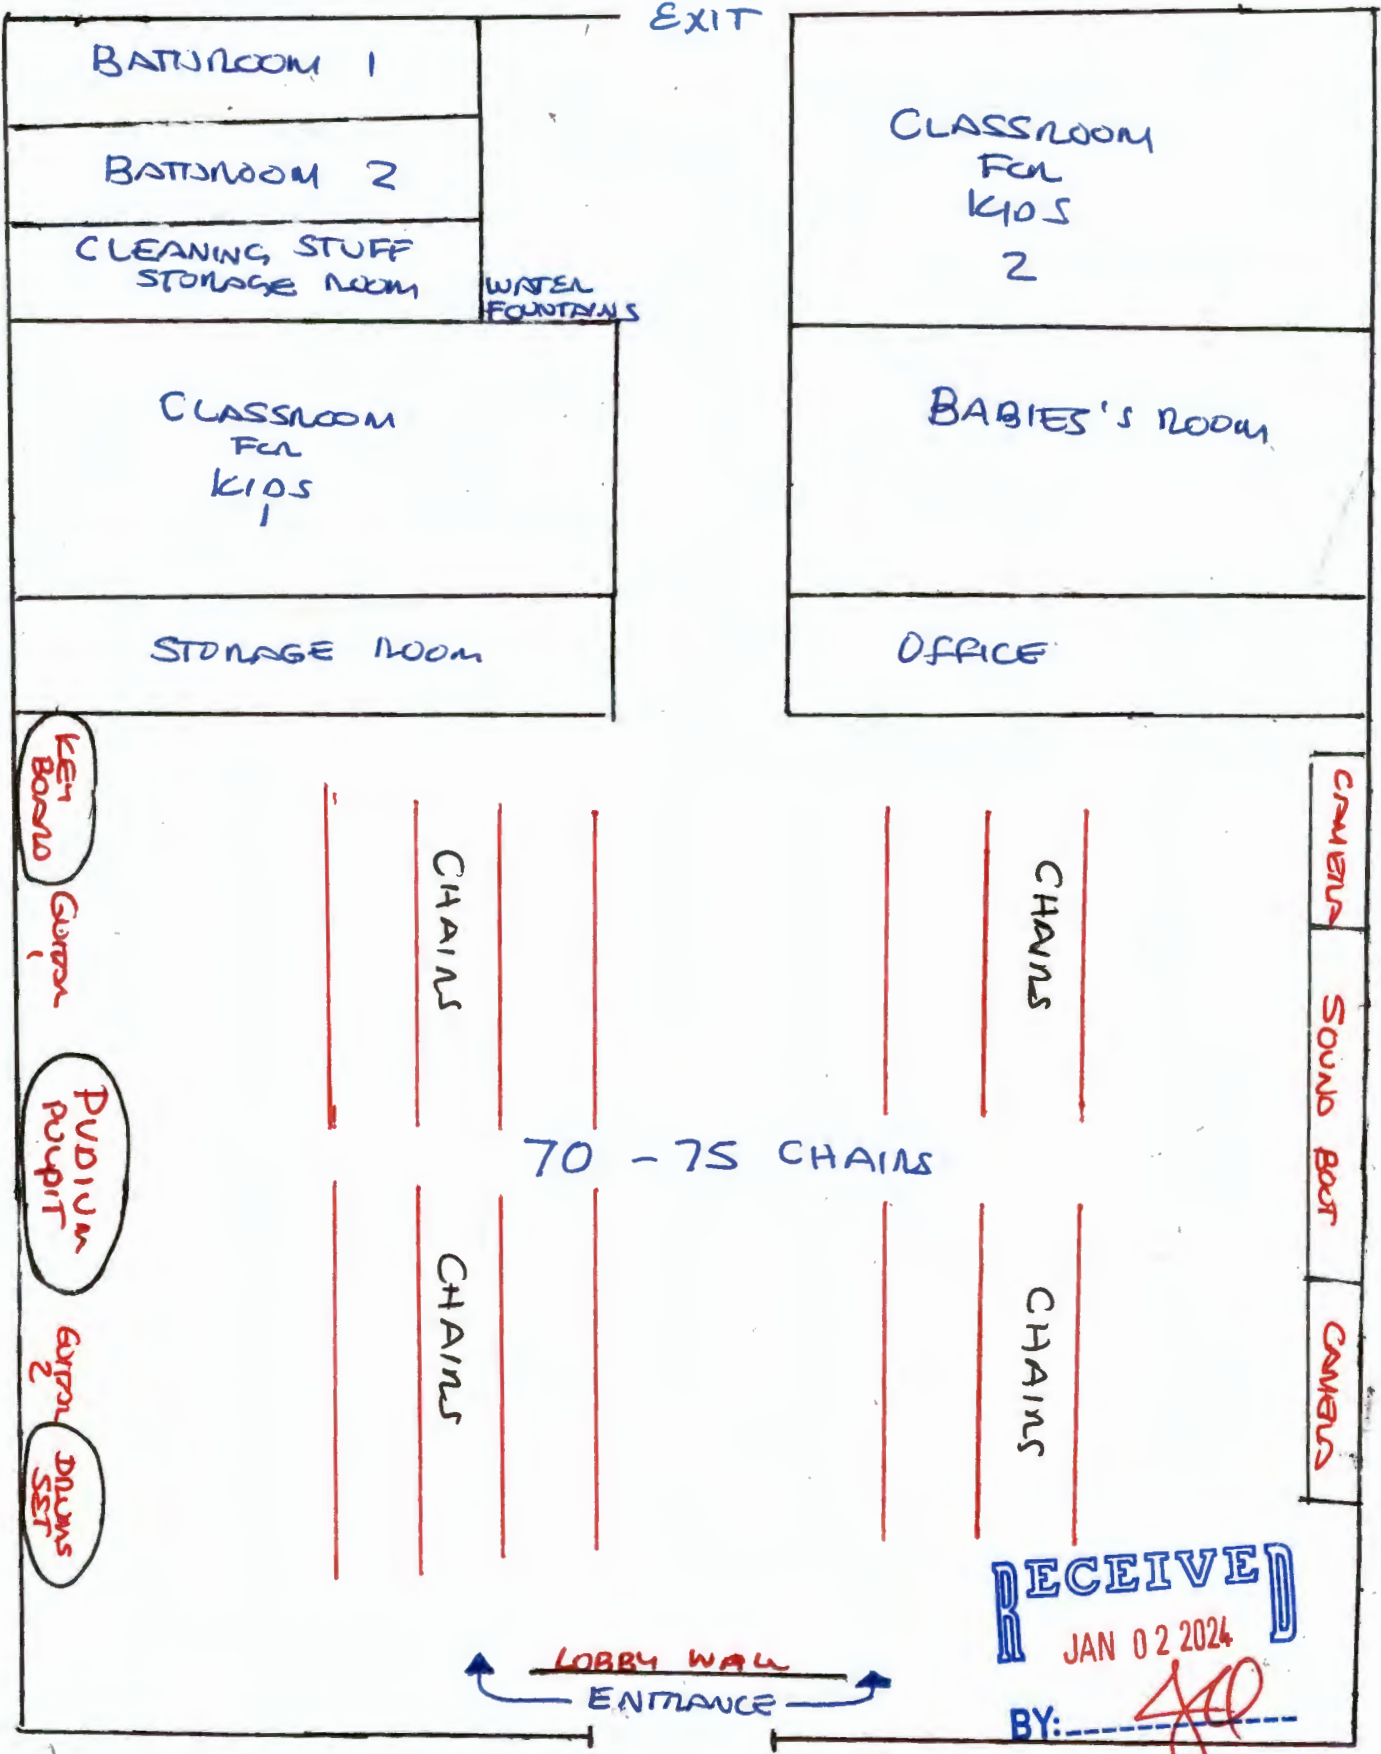 EXIT
BATHROOM 1
BATHROOM 2
CLEANING STUFF
STORAGE ROOM
WATER
FOUNTAINS
CLASSROOM
FOR
KIDS
2
CLASSROOM
FOR
KIDS
1
BABIES'S ROOM
STORAGE ROOM
OFFICE
KEY
BOARD
GUITAR
1
PUDIUM
PULPIT
GUITAR
2
DRUMS
SET
CHAIRS
CHAIRS
70 - 75 CHAIRS
CHAIRS
CHAIRS
CAMERA
SOUND BOOT
CAMERA
LOBBY WALL
ENTRANCE
RECEIVED
JAN 02 2024
BY: